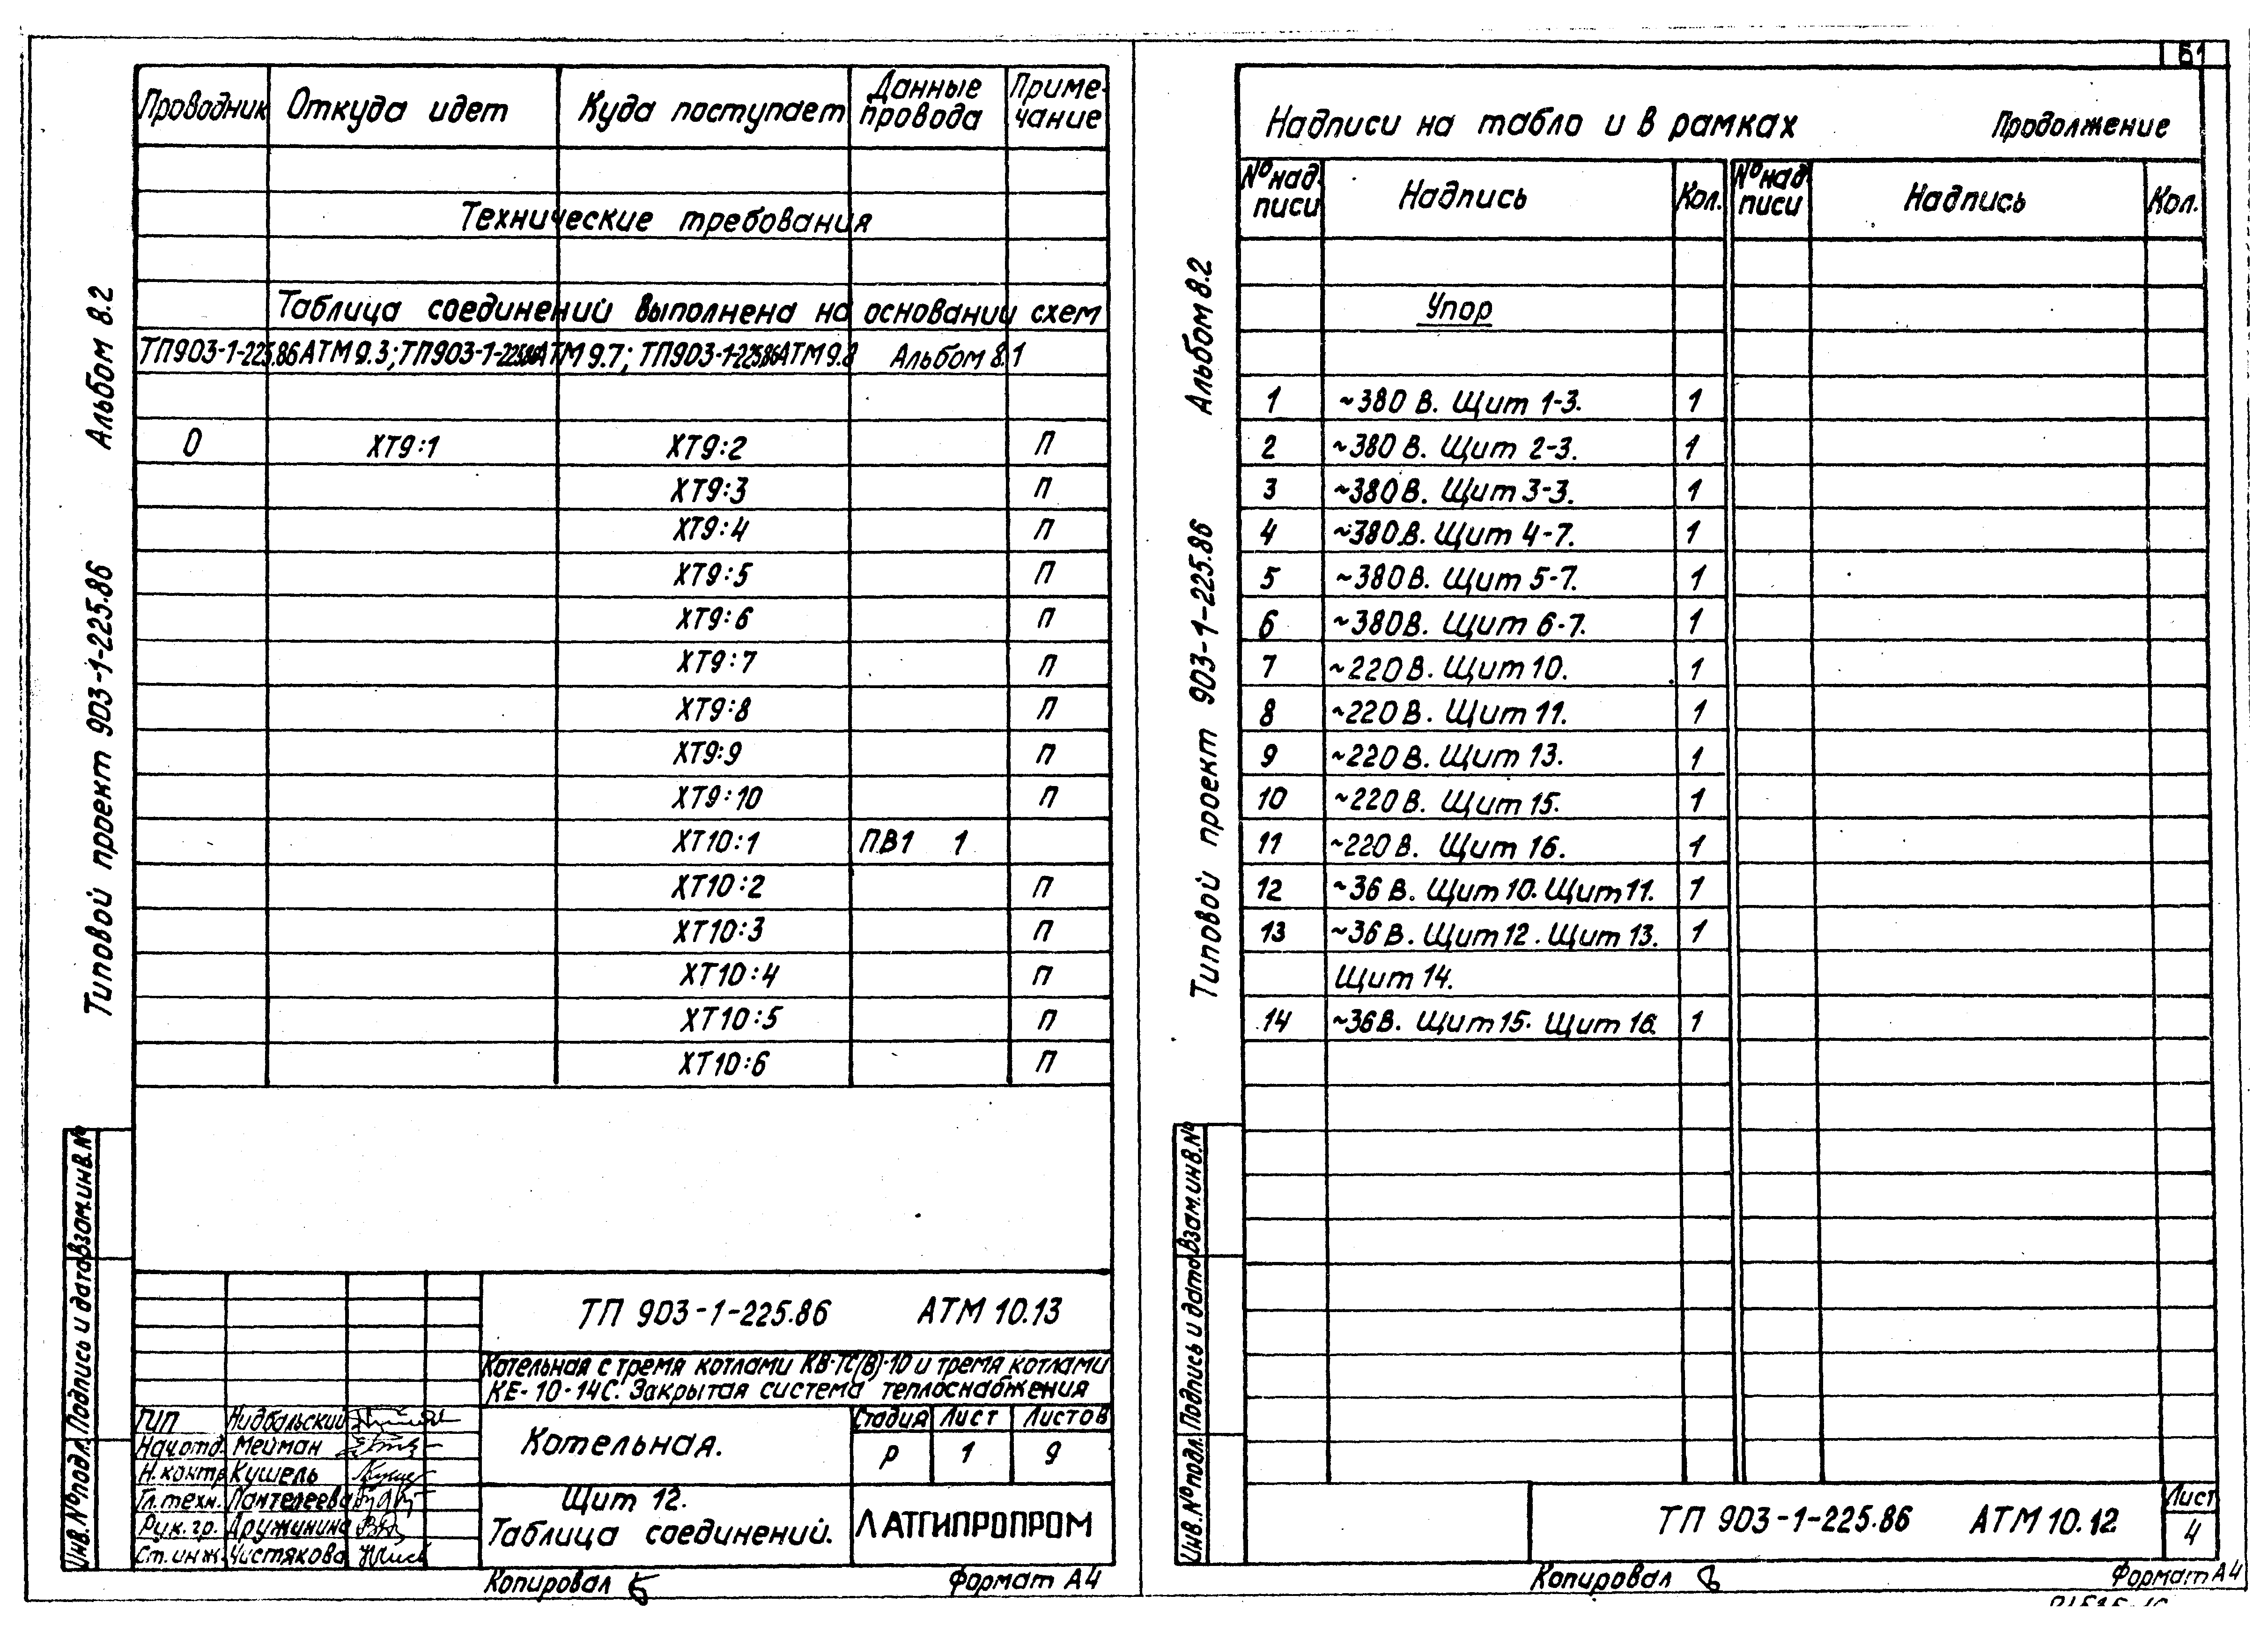 Альбом 8.2
Типовой проект 903-1-225.86
Проводник Откуда идет Куда поступает Данные провода Приме-чание
Технические требования
Таблица соединений выполнена на основании схем
ТП903-1-225.86АТМ9.3; ТП903-1-225.86АТМ9.7; ТП903-1-225.86АТМ9.8 Альбом 8.1
0 ХТ9:1 ХТ9:2 П
ХТ9:3 П
ХТ9:4 П
ХТ9:5 П
ХТ9:6 П
ХТ9:7 П
ХТ9:8 П
ХТ9:9 П
ХТ9:10 П
ХТ10:1 ПВ1 1
ХТ10:2 П
ХТ10:3 П
ХТ10:4 П
ХТ10:5 П
ХТ10:6 П
Инв.№подл. Подпись и дата Взам.инв.№
ТП 903-1-225.86 АТМ 10.13
Котельная с тремя котлами КВ-ТС(В)-10 и тремя котлами
КЕ-10-14С. Закрытая система теплоснабжения
ГИП Нидбальский
Нач.отд. Мейман
Н.контр Кушель
Гл.техн. Пантелеева
Рук.гр. Дружинина
Ст.инж. Чистякова
Котельная.
Стадия Лист Листов
Р 1 9
Щит 12.
Таблица соединений.
ЛАТГИПРОПРОМ
Копировал
Формат А4
Альбом 8.2
Типовой проект 903-1-225.86
Надписи на табло и в рамках Продолжение
№ над-писи Надпись Кол. № над-писи Надпись Кол.
Упор
1 ~380 В. Щит 1-3. 1
2 ~380 В. Щит 2-3. 1
3 ~380 В. Щит 3-3. 1
4 ~380 В. Щит 4-7. 1
5 ~380 В. Щит 5-7. 1
6 ~380 В. Щит 6-7. 1
7 ~220 В. Щит 10. 1
8 ~220 В. Щит 11. 1
9 ~220 В. Щит 13. 1
10 ~220 В. Щит 15. 1
11 ~220 В. Щит 16. 1
12 ~36 В. Щит 10. Щит 11. 1
13 ~36 В. Щит 12. Щит 13. 1
Щит 14.
14 ~36 В. Щит 15. Щит 16. 1
Инв.№подл. Подпись и дата Взам.инв.№
ТП 903-1-225.86 АТМ 10.12
Лист
4
Копировал
Формат А4